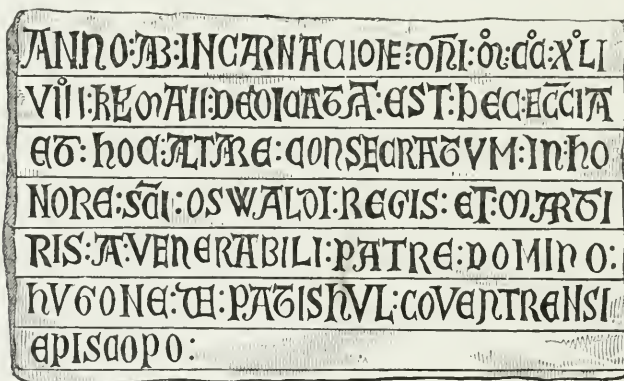 ANNO:AB:INCARNACIOIE:DÑI:M̊:CC̊:XL̊I
VIII:KL̄:MAII:DEDICATA:EST:hEC:ECC̄IA
ET:hOC:ALTARE:CONSECRATVM:IN:hO
NORE:SC̄I:OSWALDI:REGIS:ET:MARTI
RIS:A:VENERABILI:PATRE:DOMINO:
hVGONE:DE:PATISHVL:COVENTRENSI
EPISCOPO: